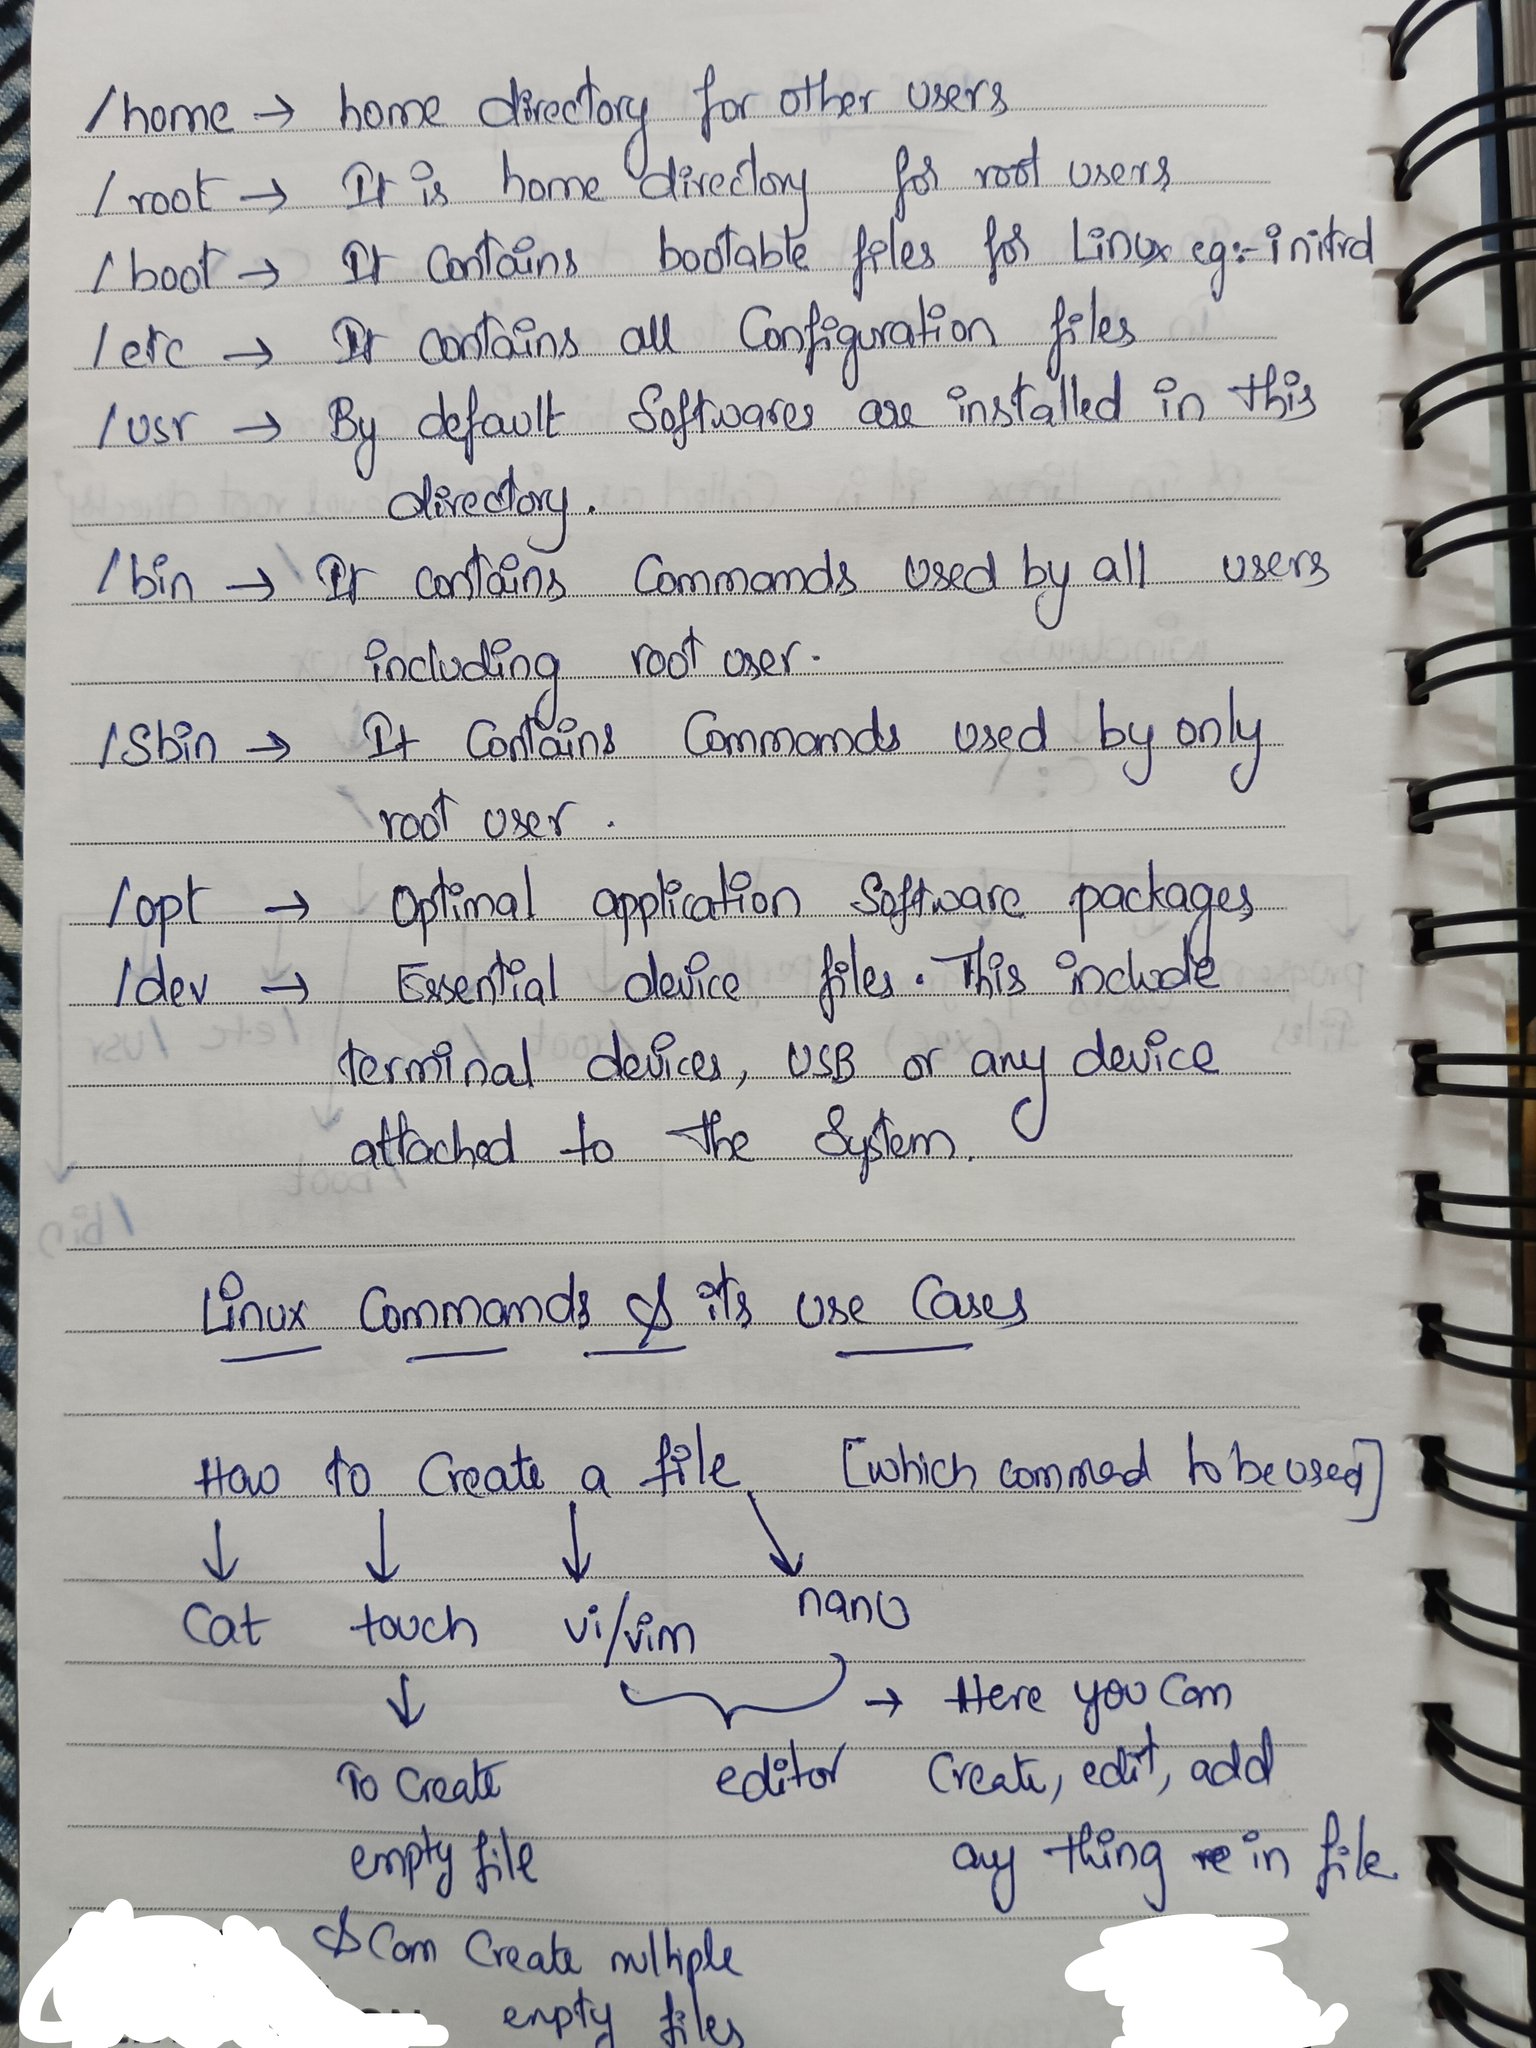 /home → home directory for other users
/root → It is home directory for root users
/boot → It contains bootable files for Linux eg:- initrd
/etc → It contains all Configuration files
/usr → By default Softwares are installed in this
directory.
/bin → It contains Commands used by all users
including root user.
/Sbin → It Contains Commands used by only
root user.
/opt → Optimal application Software packages
/dev → Essential device files. This include
terminal devices, USB or any device
attached to the System.
Linux Commands & its use Cases
How to Create a file [which commad to be used]
↓ ↓ ↓ ↘
Cat touch vi/vim nano
↓ → Here you Can
To Create editor Create, edit, add
empty file any thing in file
& Can Create multiple
empty files